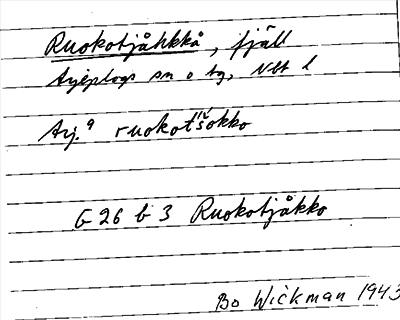 Ruokotjåhkkå, fjäll
Arjeplogs sn o tg, Nbt l
Arj.ª ruokoťšokko
G 26 b 3 Ruokotjåkko
Bo Wickman 1943